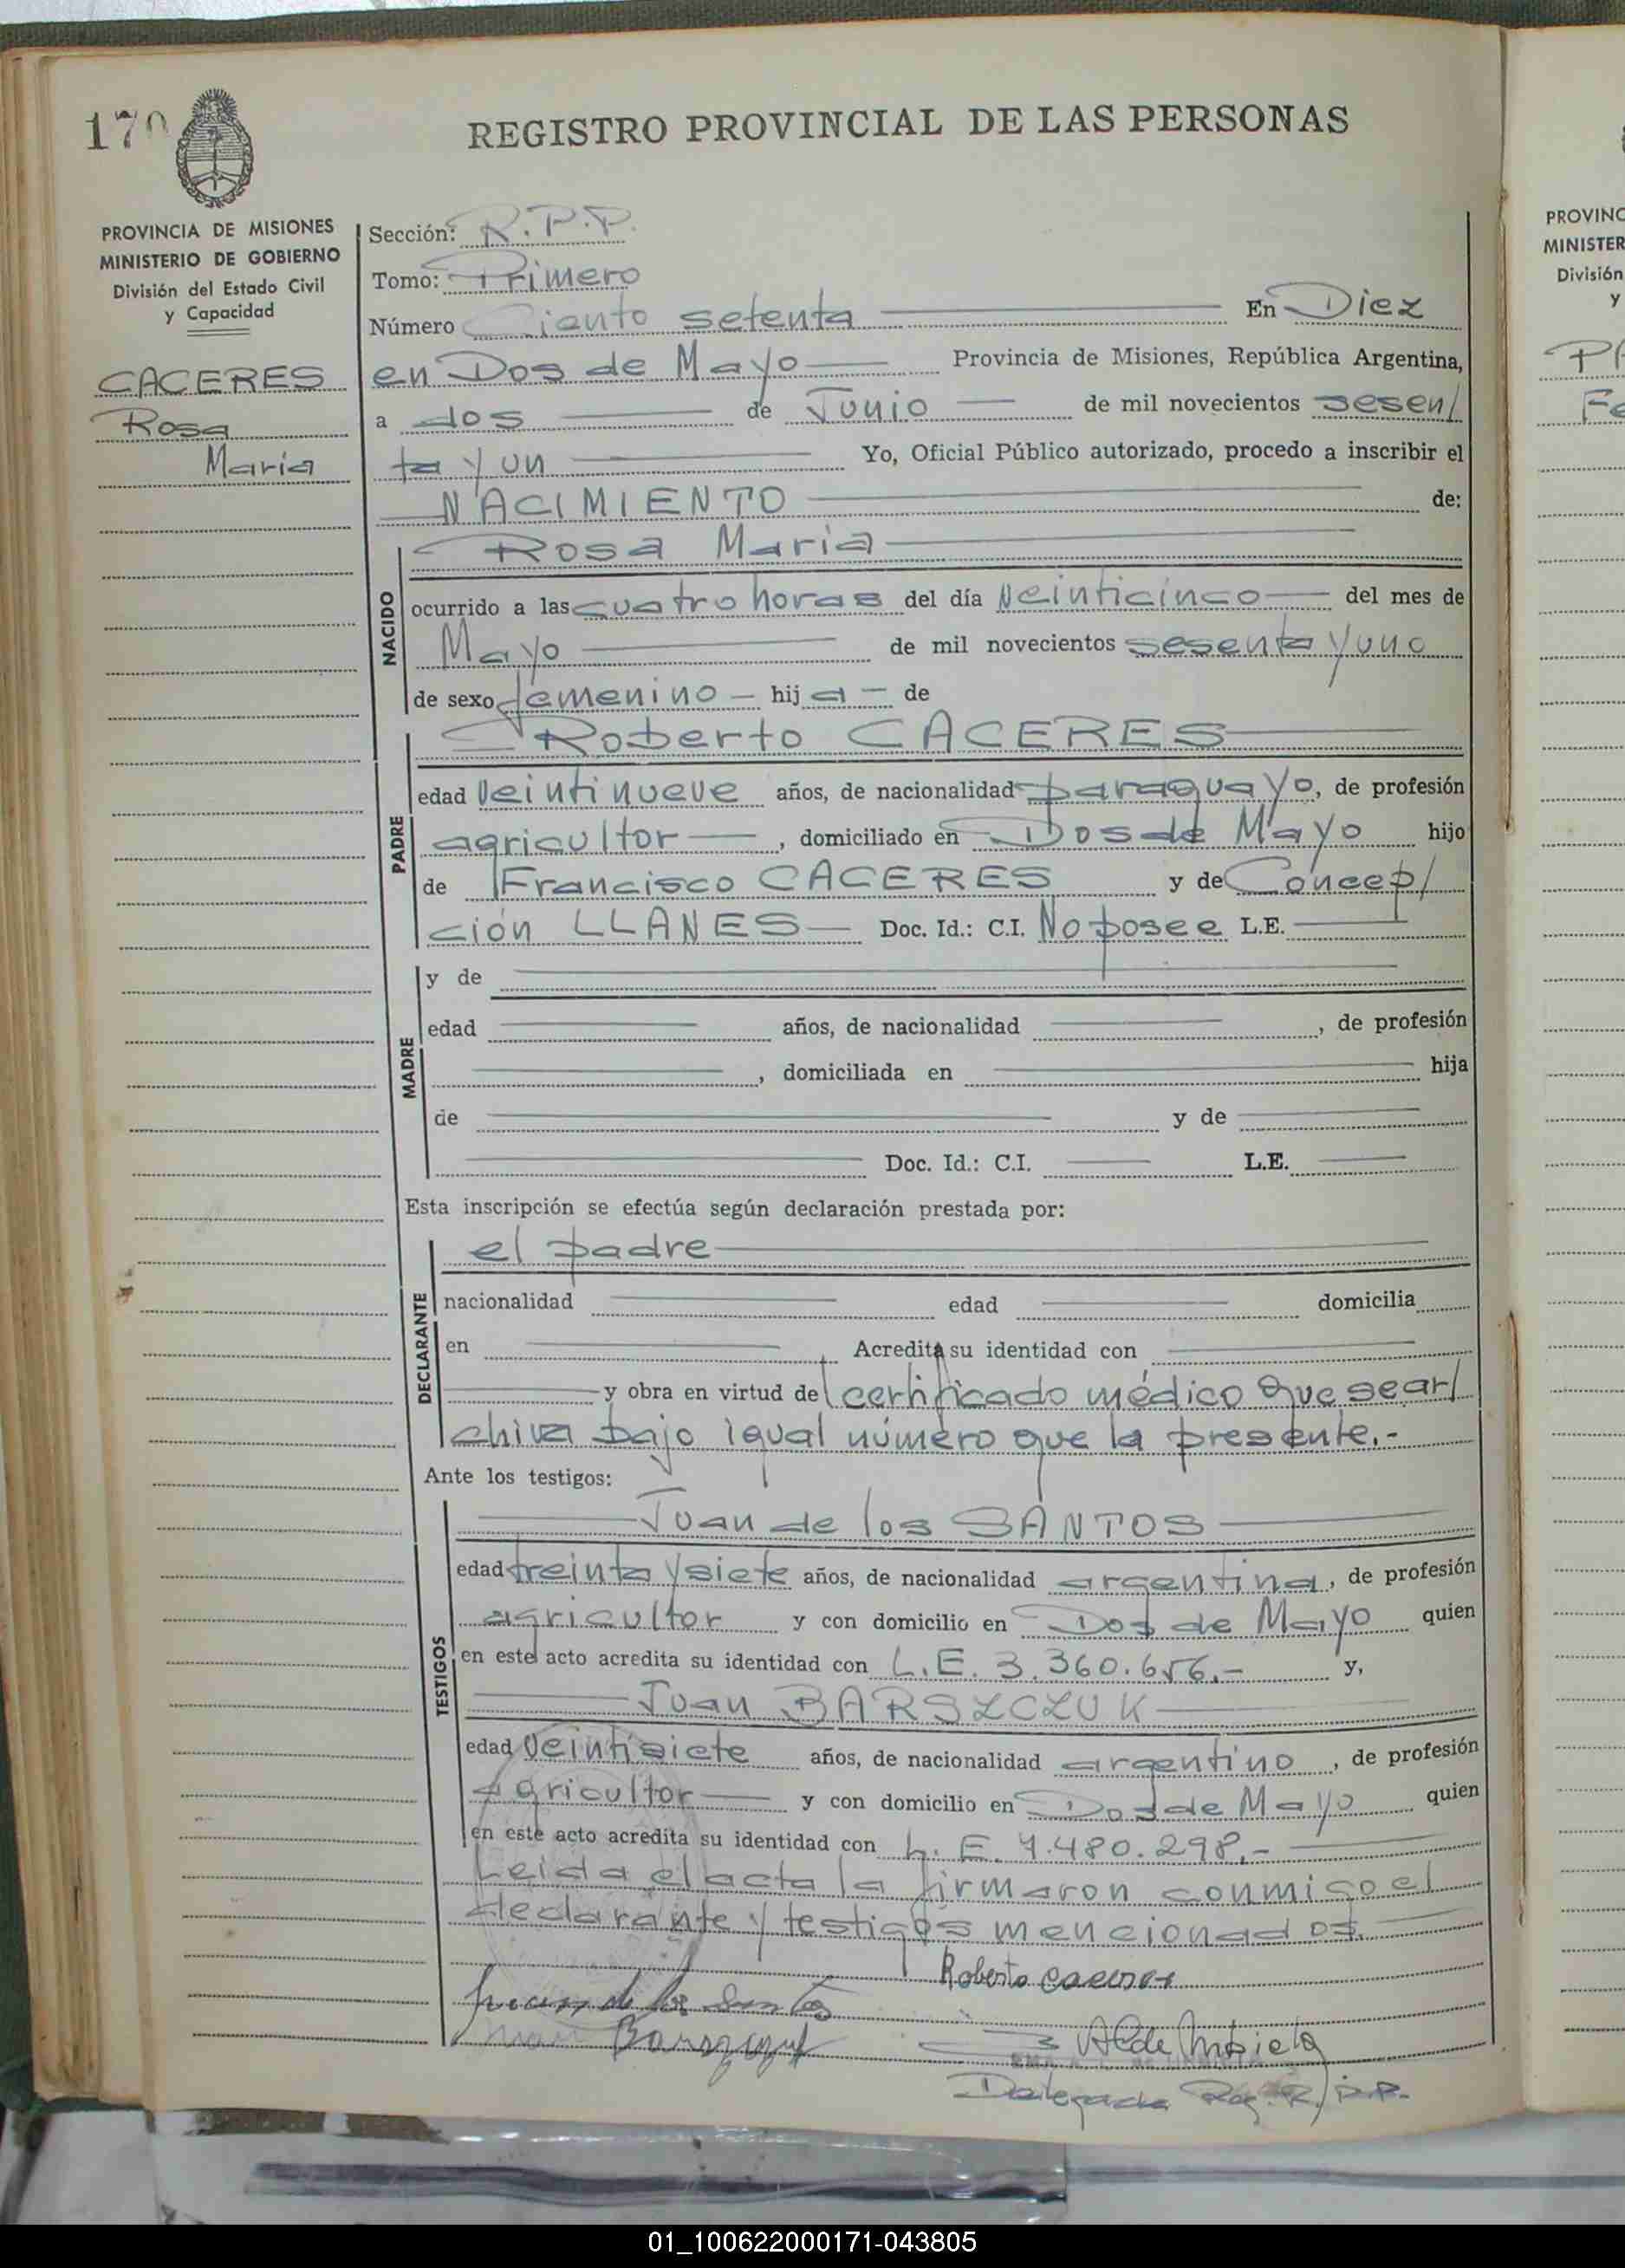 170
REGISTRO PROVINCIAL DE LAS PERSONAS
PROVINCIA DE MISIONES
MINISTERIO DE GOBIERNO
División del Estado Civil
y Capacidad
CACERES
Rosa
María
Sección: R.P.P.
Tomo: Primero
Número Ciento setenta En Diez
en Dos de Mayo Provincia de Misiones, República Argentina,
a dos de Junio de mil novecientos sesen/
ta y un Yo, Oficial Público autorizado, procedo a inscribir el
NACIMIENTO de:
NACIDO
Rosa María
ocurrido a las cuatro horas del día veinticinco del mes de
Mayo de mil novecientos sesenta y uno
de sexo femenino hij a de
PADRE
Roberto CACERES
edad veintinueve años, de nacionalidad paraguayo, de profesión
agricultor, domiciliado en Dos de Mayo hijo
de Francisco CACERES y de Concep/
ción LLANES Doc. Id.: C.I. No posee L.E.
MADRE
y de
edad años, de nacionalidad , de profesión
, domiciliada en hija
de y de
Doc. Id.: C.I. L.E.
Esta inscripción se efectúa según declaración prestada por:
DECLARANTE
el padre
nacionalidad edad domicilia
en Acredita su identidad con
y obra en virtud del certificado médico que se ar/
chiva bajo igual número que la presente.-
Ante los testigos:
TESTIGOS
Juan de los SANTOS
edad treinta y siete años, de nacionalidad argentina, de profesión
agricultor y con domicilio en Dos de Mayo quien
en este acto acredita su identidad con L.E. 3.360.656.- y,
Juan BARSZCZUK
edad veintisiete años, de nacionalidad argentino, de profesión
agricultor y con domicilio en Dos de Mayo quien
en este acto acredita su identidad con L.E. 7.480.298.-
Leida el acta la firmaron conmigo el
declarante y testigos mencionados.
Roberto caceres
Juan de los Santos
Juan Barszczuk
Delegada Reg. R.P.P.
PROVINC
MINISTER
División
y
PA
Fe
01_100622000171-043805